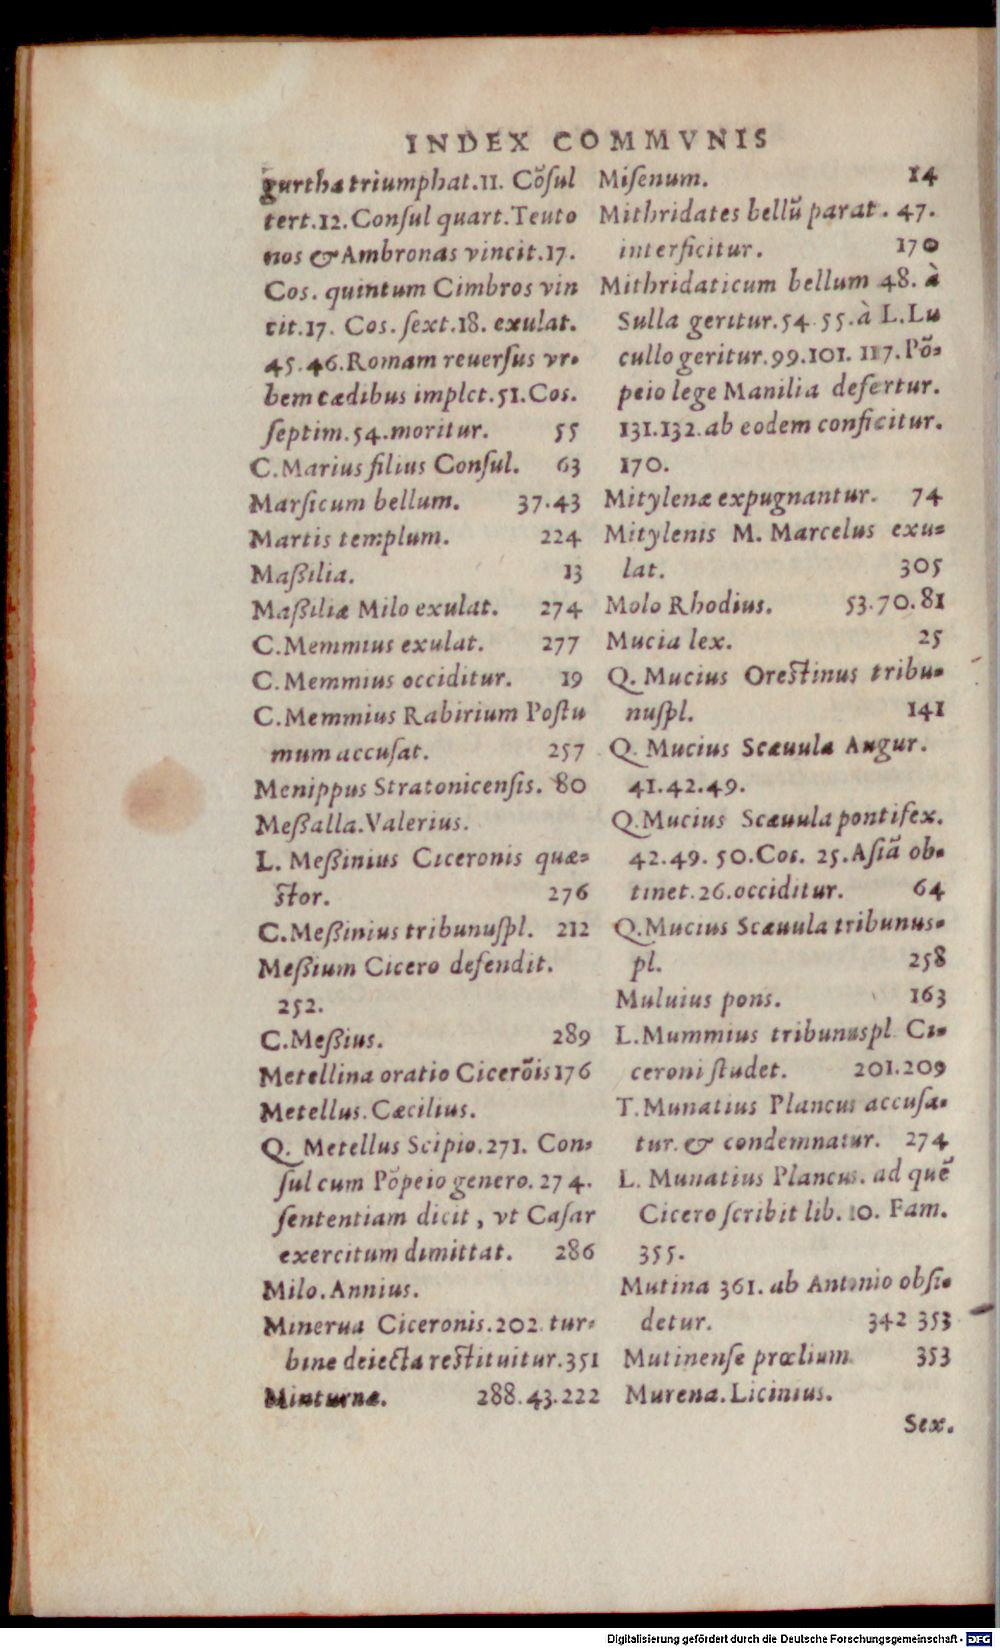 INDEX COMMVNIS
gurtha triumphat.11. Cõſul
tert.12.Conſul quart.Teuto
nos & Ambronas vincit.17.
Cos. quintum Cimbros vin
cit.17. Cos. ſext.18. exulat.
45.46.Romam reuerſus vr-
bem cædibus implet.51.Cos.
ſeptim.54.moritur. 55
C.Marius filius Conſul. 63
Marſicum bellum. 37.43
Martis templum. 224
Maßilia. 13
Maßiliæ Milo exulat. 274
C.Memmius exulat. 277
C.Memmius occiditur. 19
C.Memmius Rabirium Poſtu
mum accuſat. 257
Menippus Stratonicenſis. 80
Meßalla.Valerius.
L. Meßinius Ciceronis quæ-
ſtor. 276
C.Meßinius tribunuſpl. 212
Meßium Cicero defendit.
252.
C.Meßius. 289
Metellina oratio Cicerõis 176
Metellus.Cæcilius.
Q. Metellus Scipio.271. Con-
ſul cum Põpeio genero.274.
ſententiam dicit, vt Cæſar
exercitum dimittat. 286
Milo.Annius.
Minerua Ciceronis.202.tur-
bine deiecta reſtituitur.351
Minturnæ. 288.43.222
Miſenum. 14
Mithridates bellũ parat. 47.
interficitur. 170
Mithridaticum bellum 48. à
Sulla geritur.54.55.à L.Lu
cullo geritur.99.101. 117.Põ-
peio lege Manilia defertur.
131.132.ab eodem conficitur.
170.
Mitylenæ expugnantur. 74
Mitylenis M. Marcelus exu-
lat. 305
Molo Rhodius. 53.70.81
Mucia lex. 25
Q. Mucius Oreſtinus tribu-
nuſpl. 141
Q. Mucius Scæuula Augur.
41.42.49.
Q.Mucius Scæuula pontifex.
42.49. 50.Cos. 25.Aſiã ob-
tinet.26.occiditur. 64
Q.Mucius Scæuula tribunus-
pl. 258
Muluius pons. 163
L.Mummius tribunuspl. Ci-
ceroni ſtudet. 201.209
T.Munatius Plancus accuſa-
tur. & condemnatur. 274
L. Munatius Plancus. ad quẽ
Cicero ſcribit lib. 10. Fam.
355.
Mutina 361. ab Antonio obſi-
detur. 342 353
Mutinenſe prælium. 353
Murena.Licinius.
Sex.
Digitalisierung gefördert durch die Deutsche Forschungsgemeinschaft - DFG